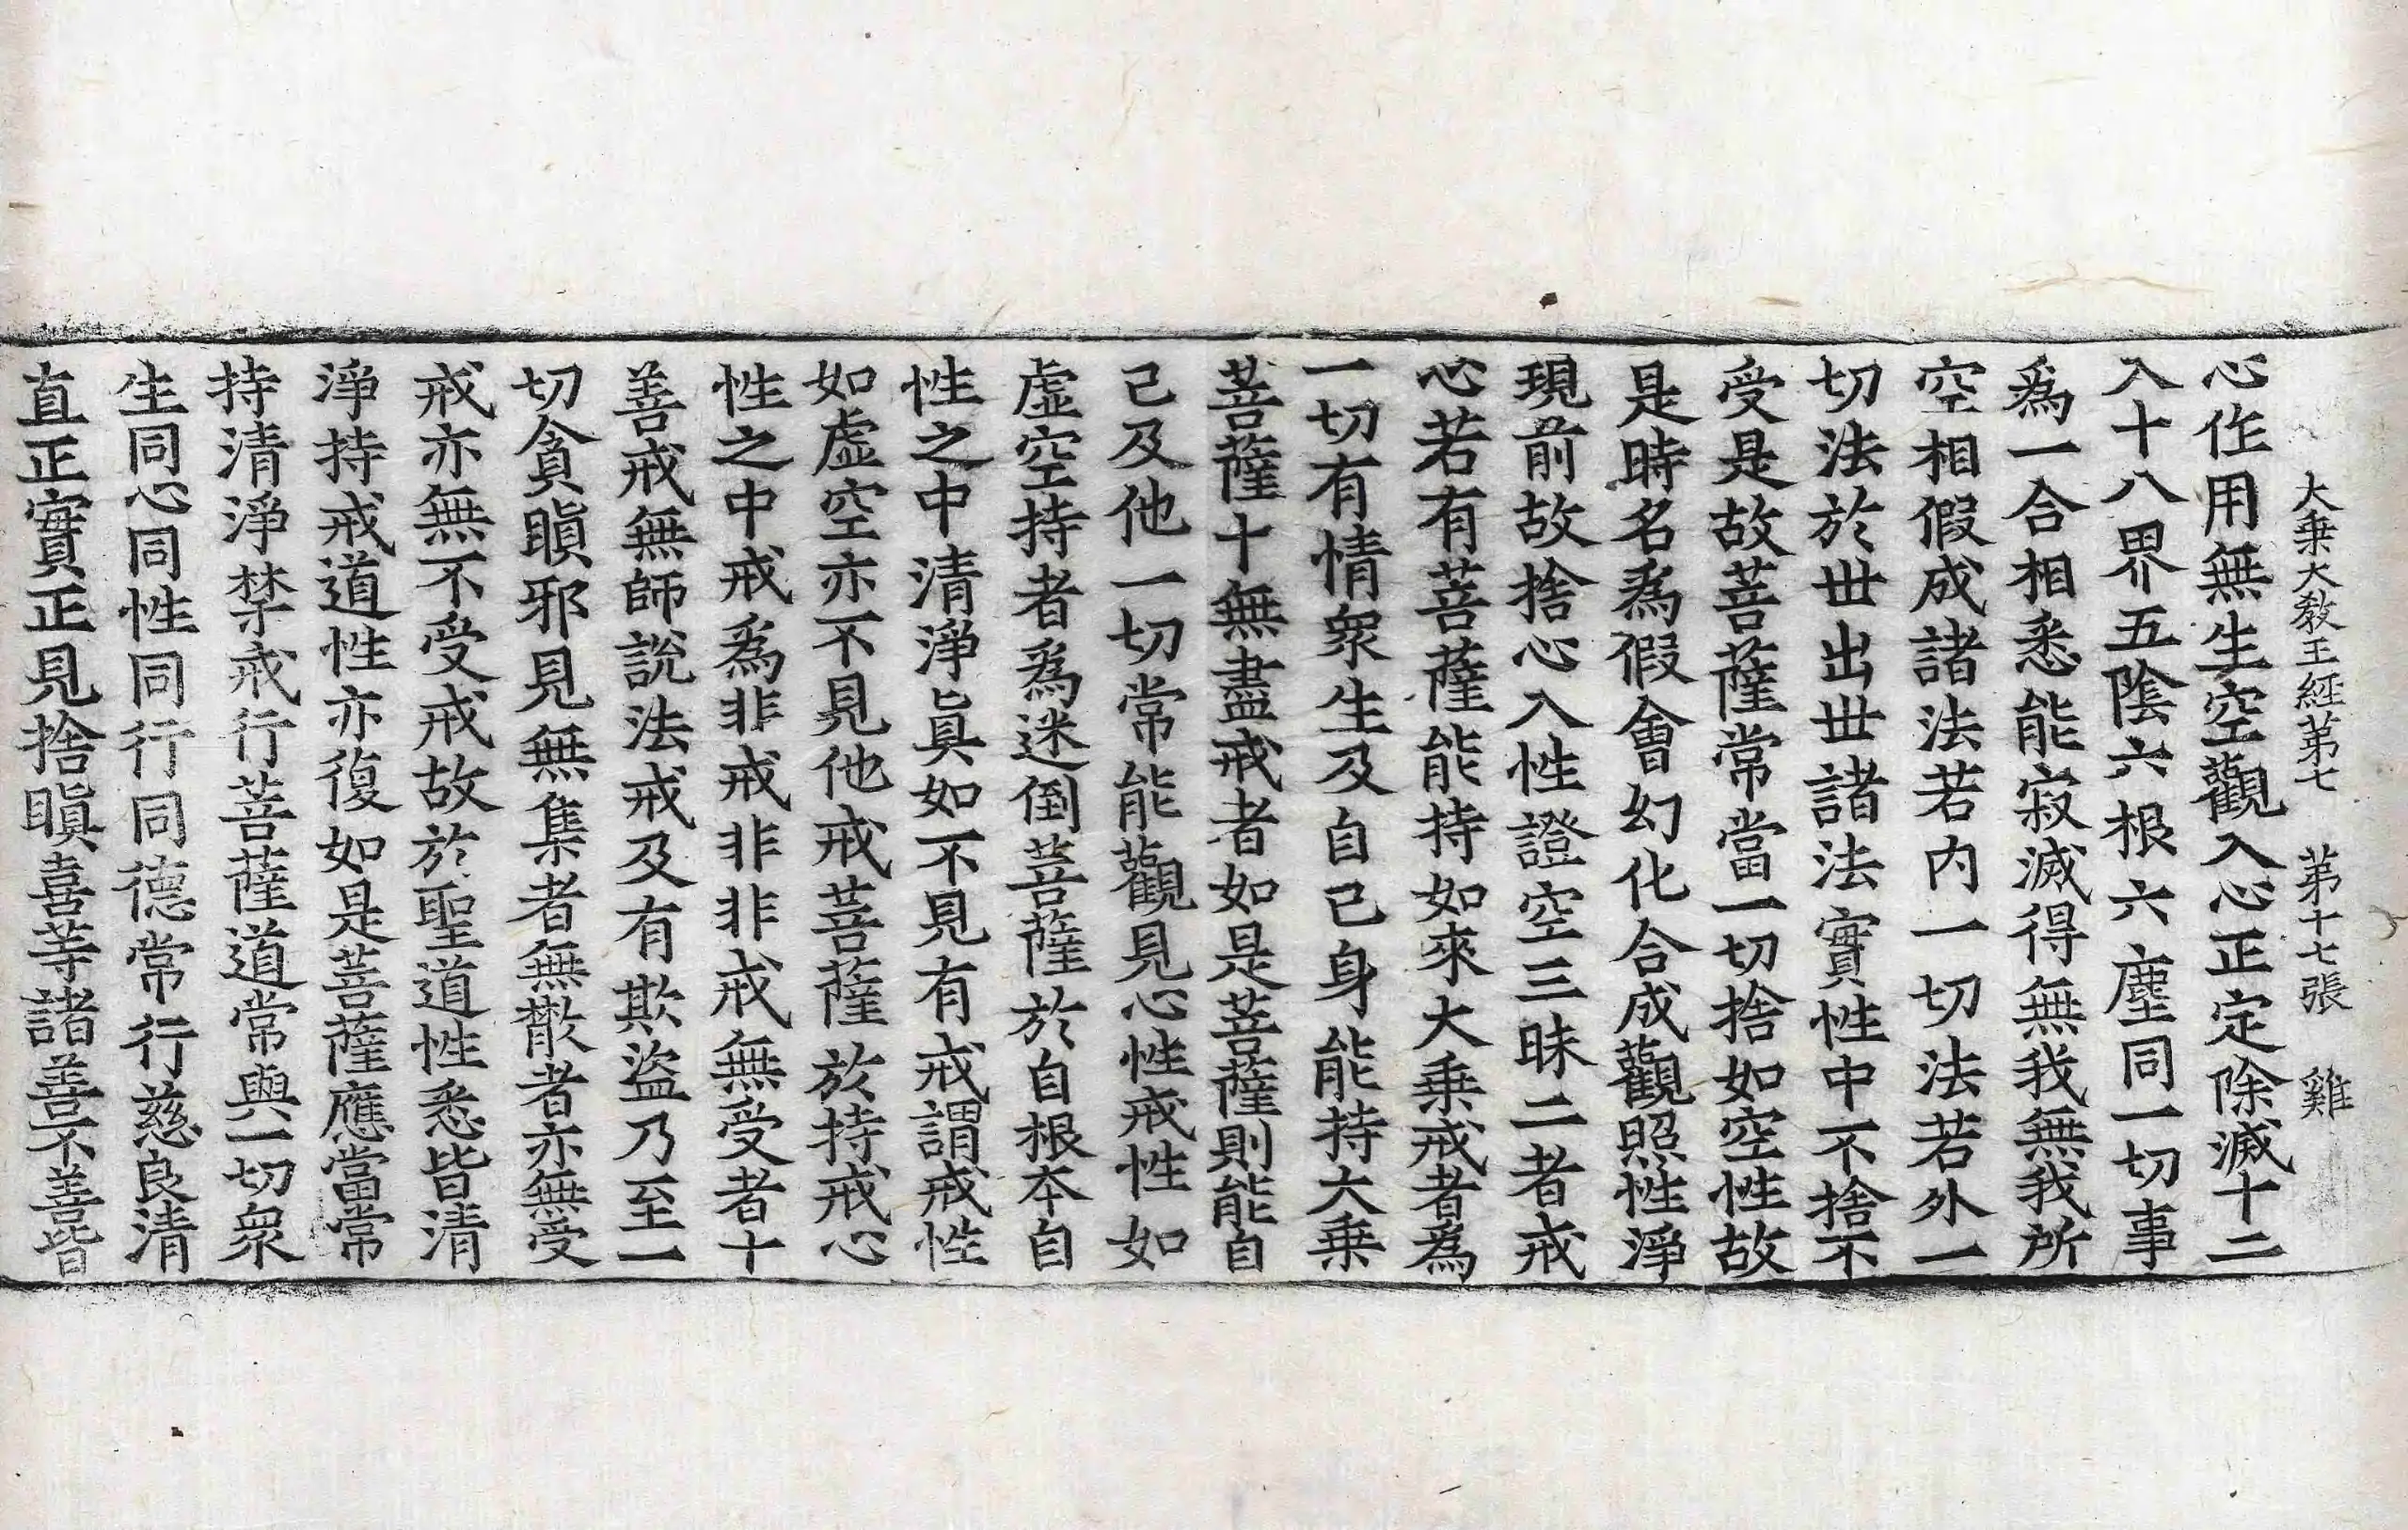 大乗大敎王經苐七 苐十七張 雞
心作用無生空觀入心正定除滅十二
入十八界五陰六根六塵同一切事
爲一合相悉能寂滅得無我無我所
空相假成諸法若内一切法若外一
切法於丗出丗諸法實性中不捨不
受是故菩薩常當一切捨如空性故
是時名爲假會幻化合成觀照性淨
現前故捨心入性證空三昧二者戒
心若有菩薩能持如來大乗戒者爲
一切有情衆生及自己身能持大乗
菩薩十無盡戒者如是菩薩則能自
己及他一切常能觀見心性戒性如
虛空持者爲迷倒菩薩於自根本自
性之中清淨眞如不見有戒謂戒性
如虛空亦不見他戒菩薩於持戒心
性之中戒爲非戒非非戒無受者十
善戒無師說法戒及有欺盜乃至一
切貪瞋邪見無集者無散者亦無受
戒亦無不受戒故於聖道性悉皆清
淨持戒道性亦復如是菩薩應當常
持清淨禁戒行菩薩道常與一切衆
生同心同性同行同德常行慈良清
直正實正見捨瞋喜等諸善不善皆